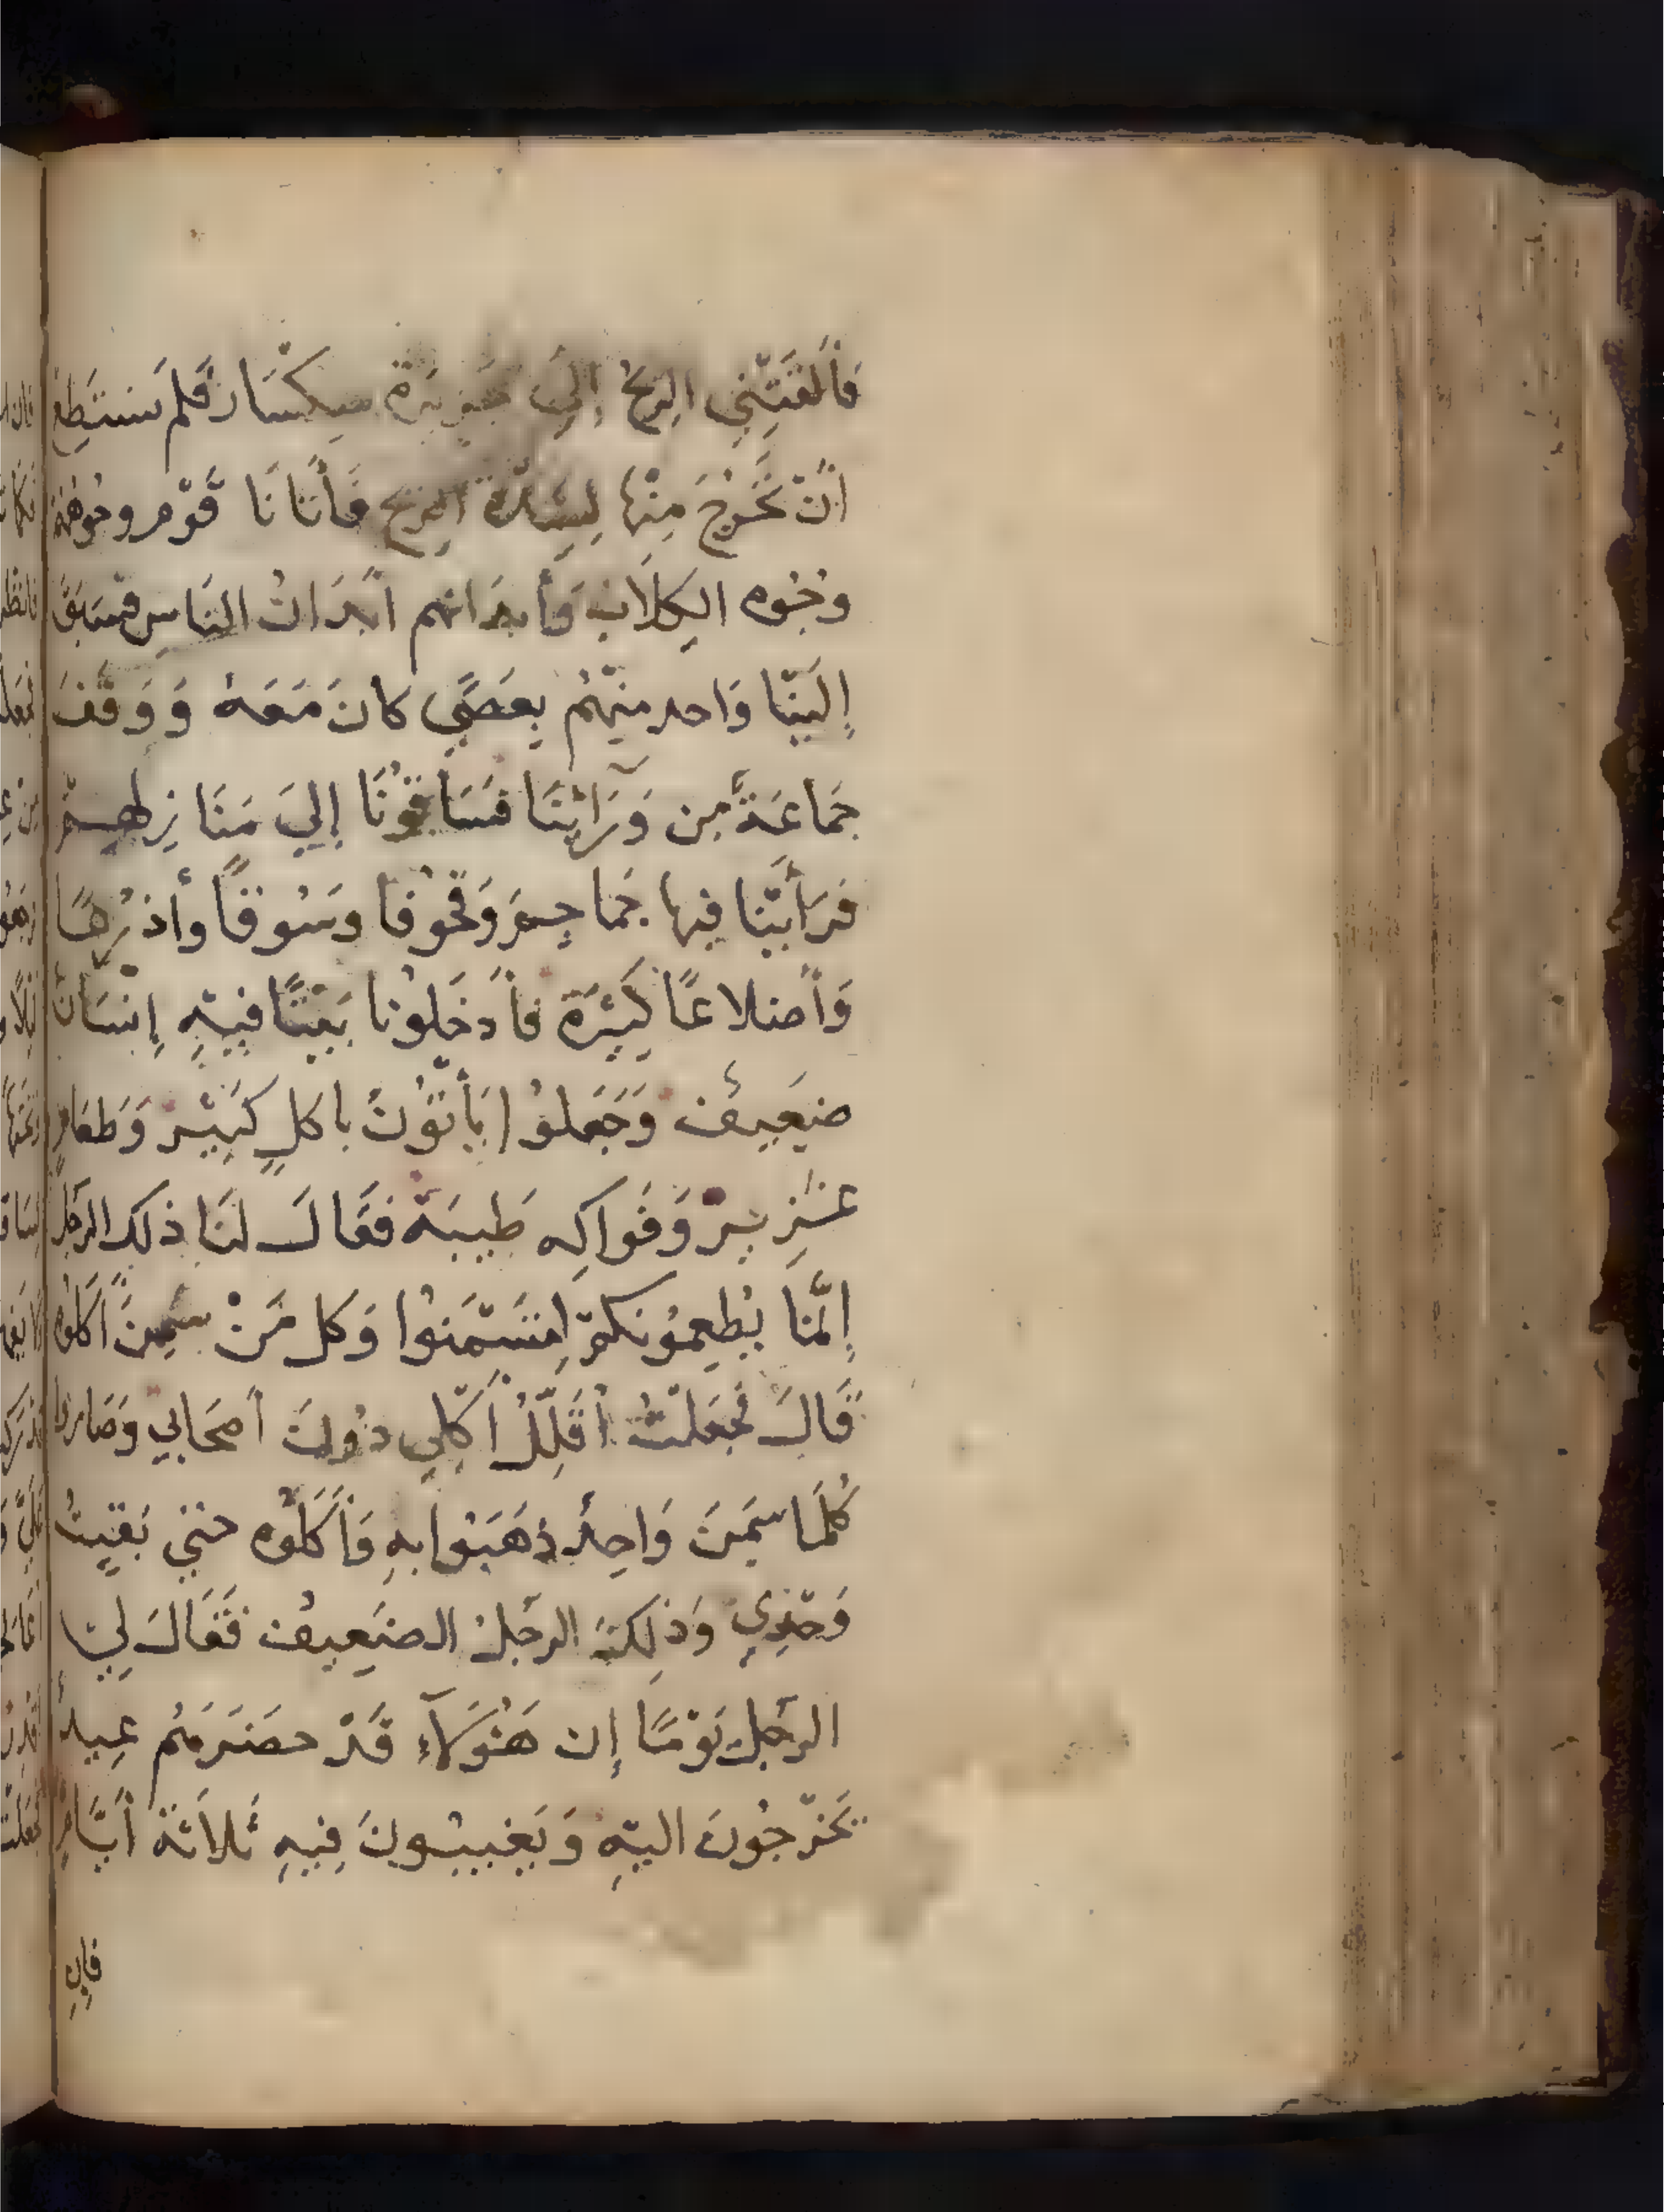 فَأَلْقَتْنِي الرِيحُ إِلَى جَزِيرَة سكْسَار فَلَم نستَطِع
أَنْ نَخْرُجَ مِنْهَا لِشِدَّة الرِيح فَأَتَانَا قَوْم وجُوههُمْ
وُجُوه الكِلَاب وَأبدَانهم أبْدَانُ النَاس فسَبَقَ
إِلَيْنَا وَاحد مِنْهُم بِعَصًي كَانَ مَعَهُ وَوَقَفَ
جَمَاعَةٌ مِن وَرَآئِنَا فَسَاقُونَا إِلَيَ مَنَازِلهِمْ
فَرَأَيْنَا فِيهَا جَمَاجِمَ وَقحُوفا وَسُوقًا وأذرُعًا
وَأَضلاعًا كَثِيْرَة فأَدخَلُونا بَيْتًا فِيْهِ إِنْسَانٌ
ضَعِيفٌ وَجَعَلُوا يَأتُونَ بأكلٍ كَثِيْر وَطَعَامٍ
غَزِيْر وَفَوَاكِه طَيبَة فَقَالَ لنَا ذلك الرجُل
إِنَّمَا يُطْعِمُونكمْ لِتَسْمَنُوا وَكل مَنْ سَمِنَ أَكَلُوه
قَالَ فَجَعَلْتُ أُقَلِّلُ أَكْلِي دُونَ أَصحَابي وَصَاروا
كُلمَا سَمِنَ وَاحِدٌ ذَهَبُوا بِهِ وَأَكَلُوه حَتي بَقِيْتُ
وَحْدِي وَذلِكَ الرجُلُ الضَعِيفُ فَقَالَ لِيَ
الرجُل يَوْمًا إِن هَؤُلَآءِ قَدْ حضَرَهُم عِيدٌ
يَخْرجُونَ اليْهِ وَيَغيبُونَ فِيهِ ثَلَاثَةَ أَيَّامٍ
فإِن